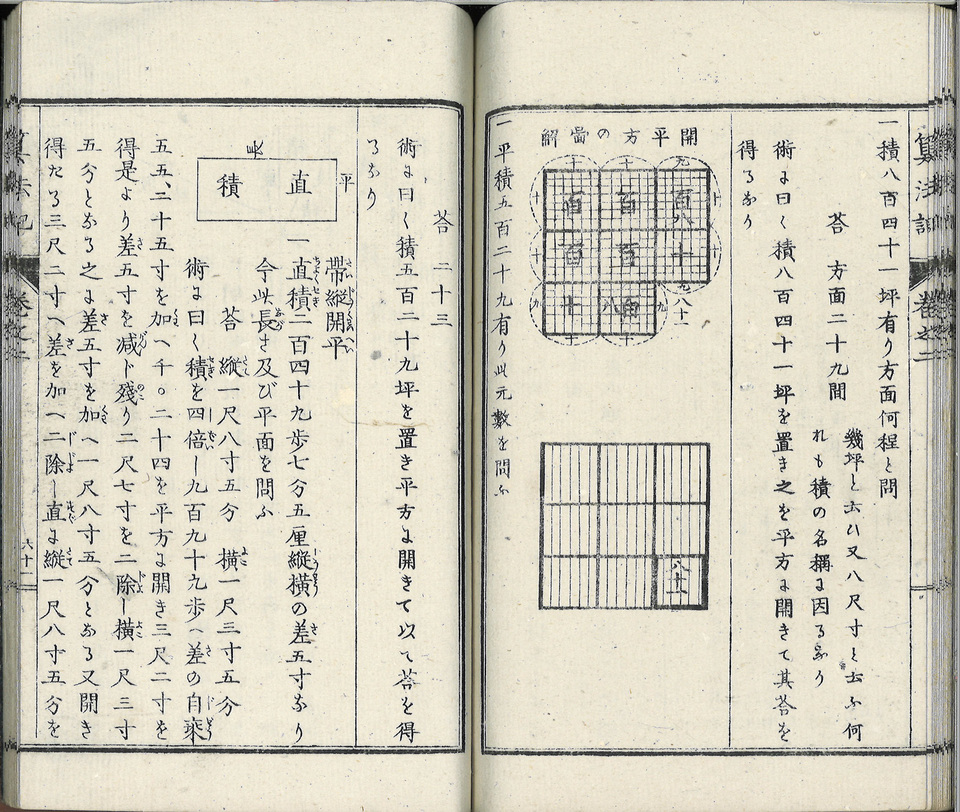 一積八百四十一坪有り方面何程と問
答 方面二十九間
幾坪と云ひ又八尺寸と云ふ何
れも積の名稱に因るなり
術に曰く積八百四十一坪を置き之を平方に開きて其答を
得るなり
開平方の啚解
十 十 九
十 百 百 百八 十
十 百 百 十 十
九 十 百八 九 八十一
十 十
八十一
一平積五百二十九有り此元數を問ふ
答 二十三
術に曰く積五百二十九坪を置き平方に開きて以て答を得
るなり
平
直積
帶縱開平
一直積二百四十九歩七分五厘縱横の差五寸なり
今此長さ及び平面を問ふ
答 縱一尺八寸五分 横一尺三寸五分
術に曰く積を四倍し九百九十九歩へ差の自乘
五五、二十五寸を加へ千〇二十四を平方に開き三尺二寸を
得是より差五寸を減じ殘り二尺七寸を二除し横一尺三寸
五分となる之に差五寸を加へ一尺八寸五分となる又開き
得たる三尺二寸へ差を加へ二除し直に縱一尺八寸五分を
六十一